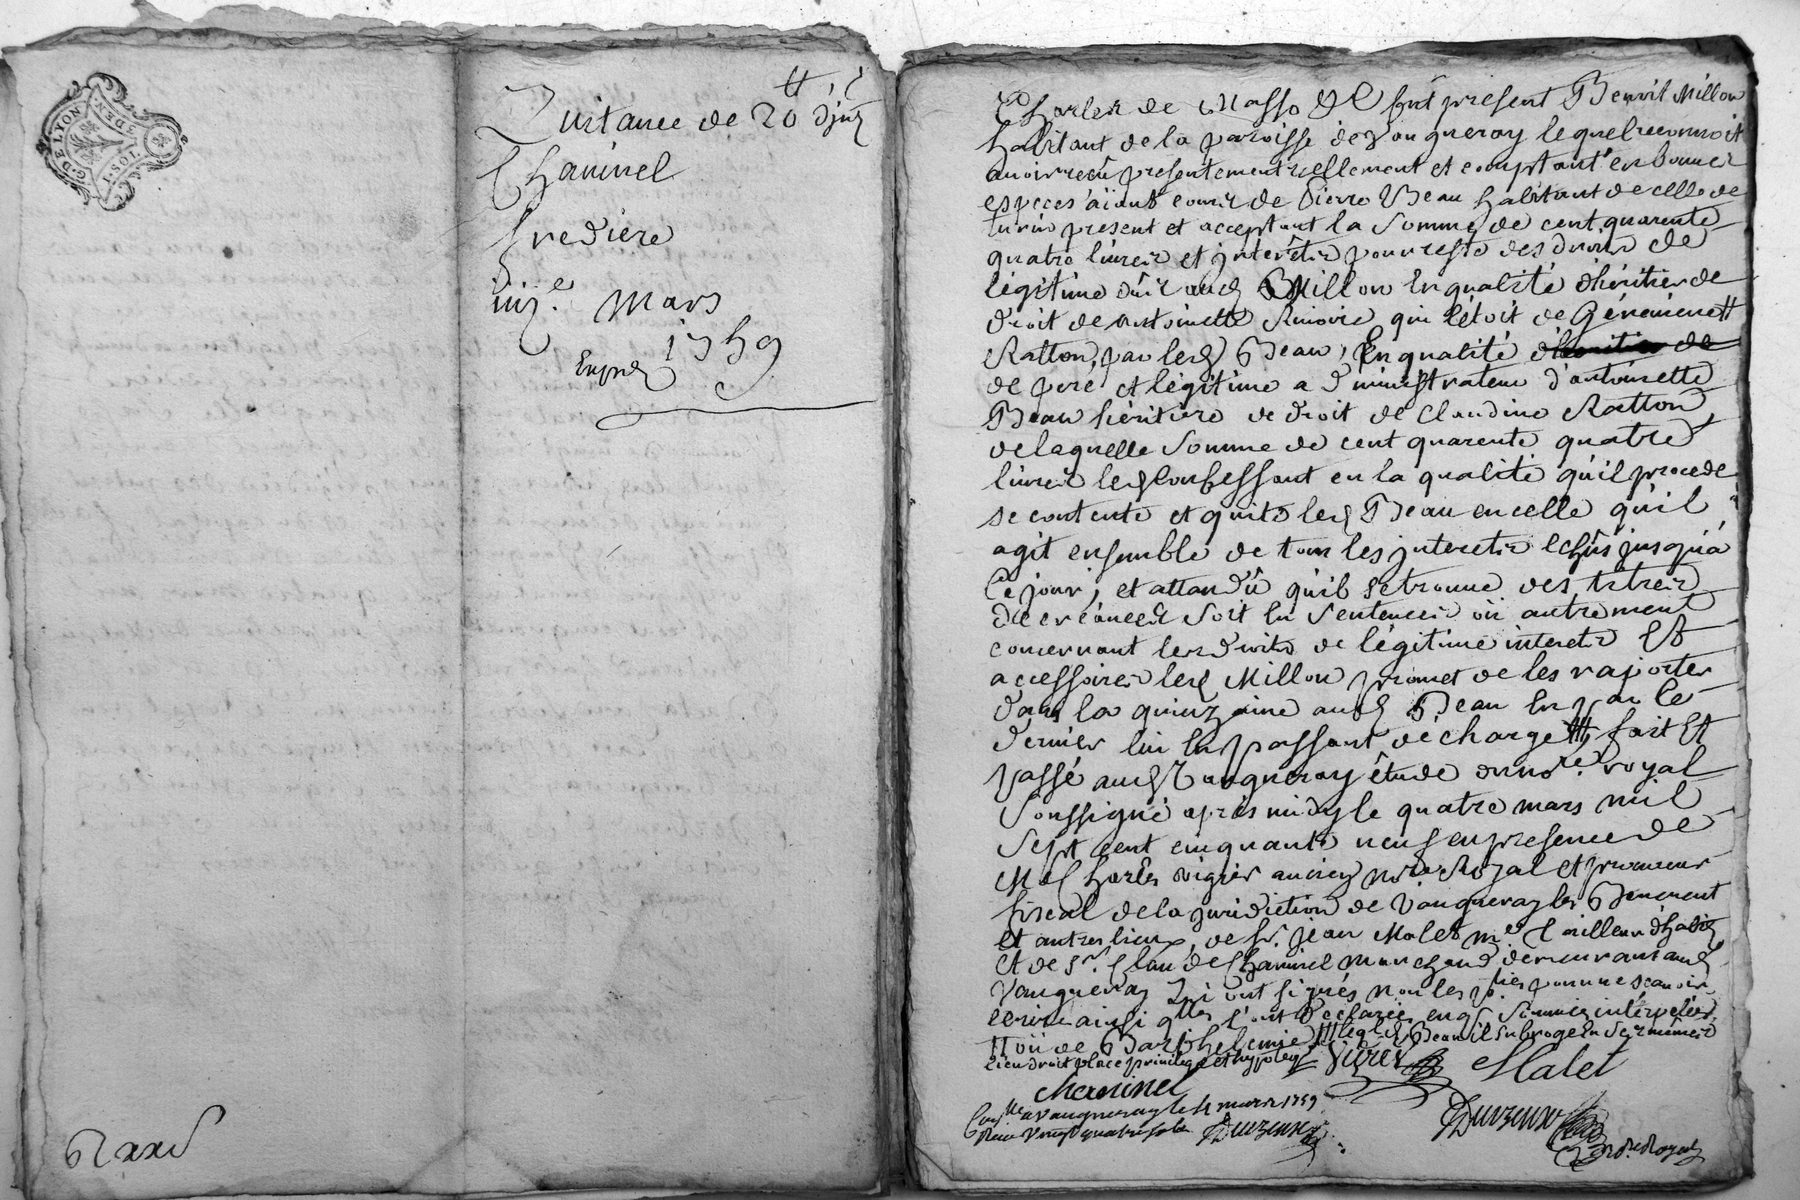 DE LYON
1. SOL
3 DEN
Quitance de 20
Chaninel
Fredière
iiij.e mars
1759
Exped
Charles de Masso &c fut present Benoit Millon
habitant de la paroisse de Vaugneray lequel reconnoit
avoir reçu presentement reellement et comptant en bonnes
especes aïant cours de Pierre Beau habitant de celle de
present et acceptant la Somme de cent quarente
quatre livres et interêts pour reste des droits de
légitime dûs aud Millon En qualité d'héritier de
droit de Antoinette qui l'étoit de
Ratton, par led Beau, En qualité
de pere et légitime administrateur d'antoinette
Beau héritiere de droit de Claudine Ratton,
de laquelle Somme de cent quarente quatre
livres led Confessant en la qualité qu'il procede
se contente et quite led Beau en celle qu'il
agit ensemble de tous les interets échus jusqu'à
Ce jour, et attandû qu'il se trouve des titres
de créances Soit en Sentences ou autrement
concernant les droits de légitime interets Et
accessoires led Millon promet de les raporter
dans la quinzaine aud Beau En par Ce
dernier lui En passant décharge fait Et
passé aud Vaugneray étude du no.re royal
Soussigné après midy le quatre mars mil
Sept cent cinquante neuf en presence de
Me Charles vigier ancien no.re Royal et procureur
fiscal de la juridiction de Vaugneray
Et autres lieux, de Sr. Jean Malet m.e tailleur d'habits
Et de Sr. Claude Chaninel marchand demeurant aud
Vaugneray Qui ont signés non les p.ties pour ne scavoir
ecrire ainsi qu'elles l'ont Declarées Sommées interpelées
ou de Barthelemie Beau il Subroge En Ses mêmes
lieu droit place privilege et hypoteq Vigier Malet
chaninel
a vaugneray le 4 mars 1759
Reçu vingt quatre sols Durzeux Durzeux
no.re Royal